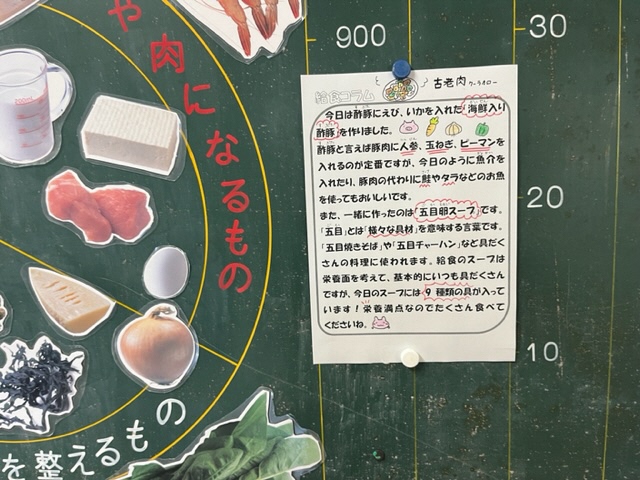 や肉になるもの
を整えるもの
900
30
20
10
給食コラム
古老肉
クーラオロー
今日は酢豚にえび、いかを入れた「海鮮入り
酢豚」を作りました。
酢豚と言えば豚肉に人参、玉ねぎ、ピーマンを
入れるのが定番ですが、今日のように魚介を
入れたり、豚肉の代わりに鮭やタラなどのお魚
を使ってもおいしいです。
また、一緒に作ったのは「五目卵スープ」です。
「五目」とは「様々な具材」を意味する言葉です。
「五目焼きそば」や「五目チャーハン」など具だく
さんの料理に使われます。給食のスープは
栄養面を考えて、基本的にいつも具だくさん
ですが、今日のスープには9種類の具が入って
います！栄養満点なのでたくさん食べて
くださいね。